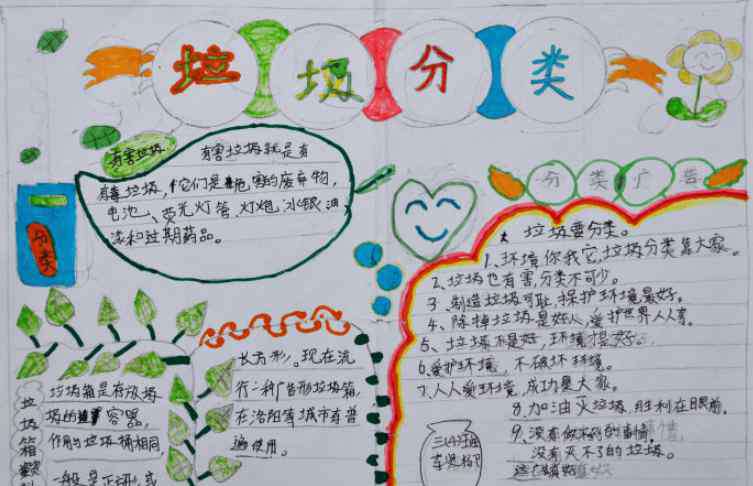 垃圾分类
有害垃圾
有害垃圾就是有
有毒垃圾,它们是危害的废弃物,
电池、荧光灯管、灯炮、水银、油
漆和过期药品。
分类
分类广告
垃圾要分类。
1、环境你我它,垃圾分类靠大家。
2、垃圾也有害,分类不可少。
3、制造垃圾可耻,保护环境最好。
4、除掉垃圾是好人,爱护世界人人享。
5、垃圾不是好,环境
6、爱护环境,不破坏环境。
7、人人爱环境,成功是大家。
8、加油灭垃圾,胜利在眼前。
9、没有做不到的事情,
没有灭不了的垃圾。
三(4)班
长方形。现在流
行一种广告形垃圾箱,
在洛阳等城市有普
遍使用。
垃圾箱
垃圾箱是存放垃
圾的容器,
作用与垃圾桶相同,
一般是正方形或